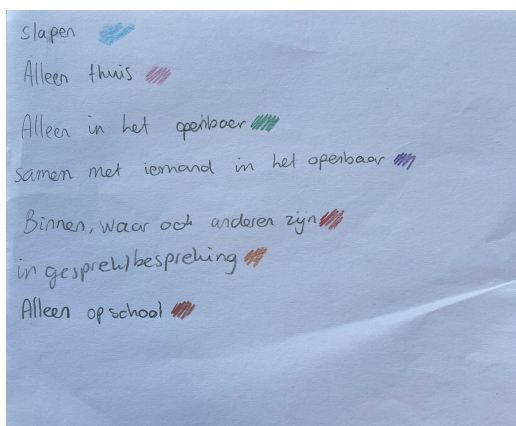 slapen
Alleen thuis
Alleen in het openbaer
samen met iemand in het openbaar
Binnen, waar ook anderen zijn
in gesprek/bespreking
Alleen op school